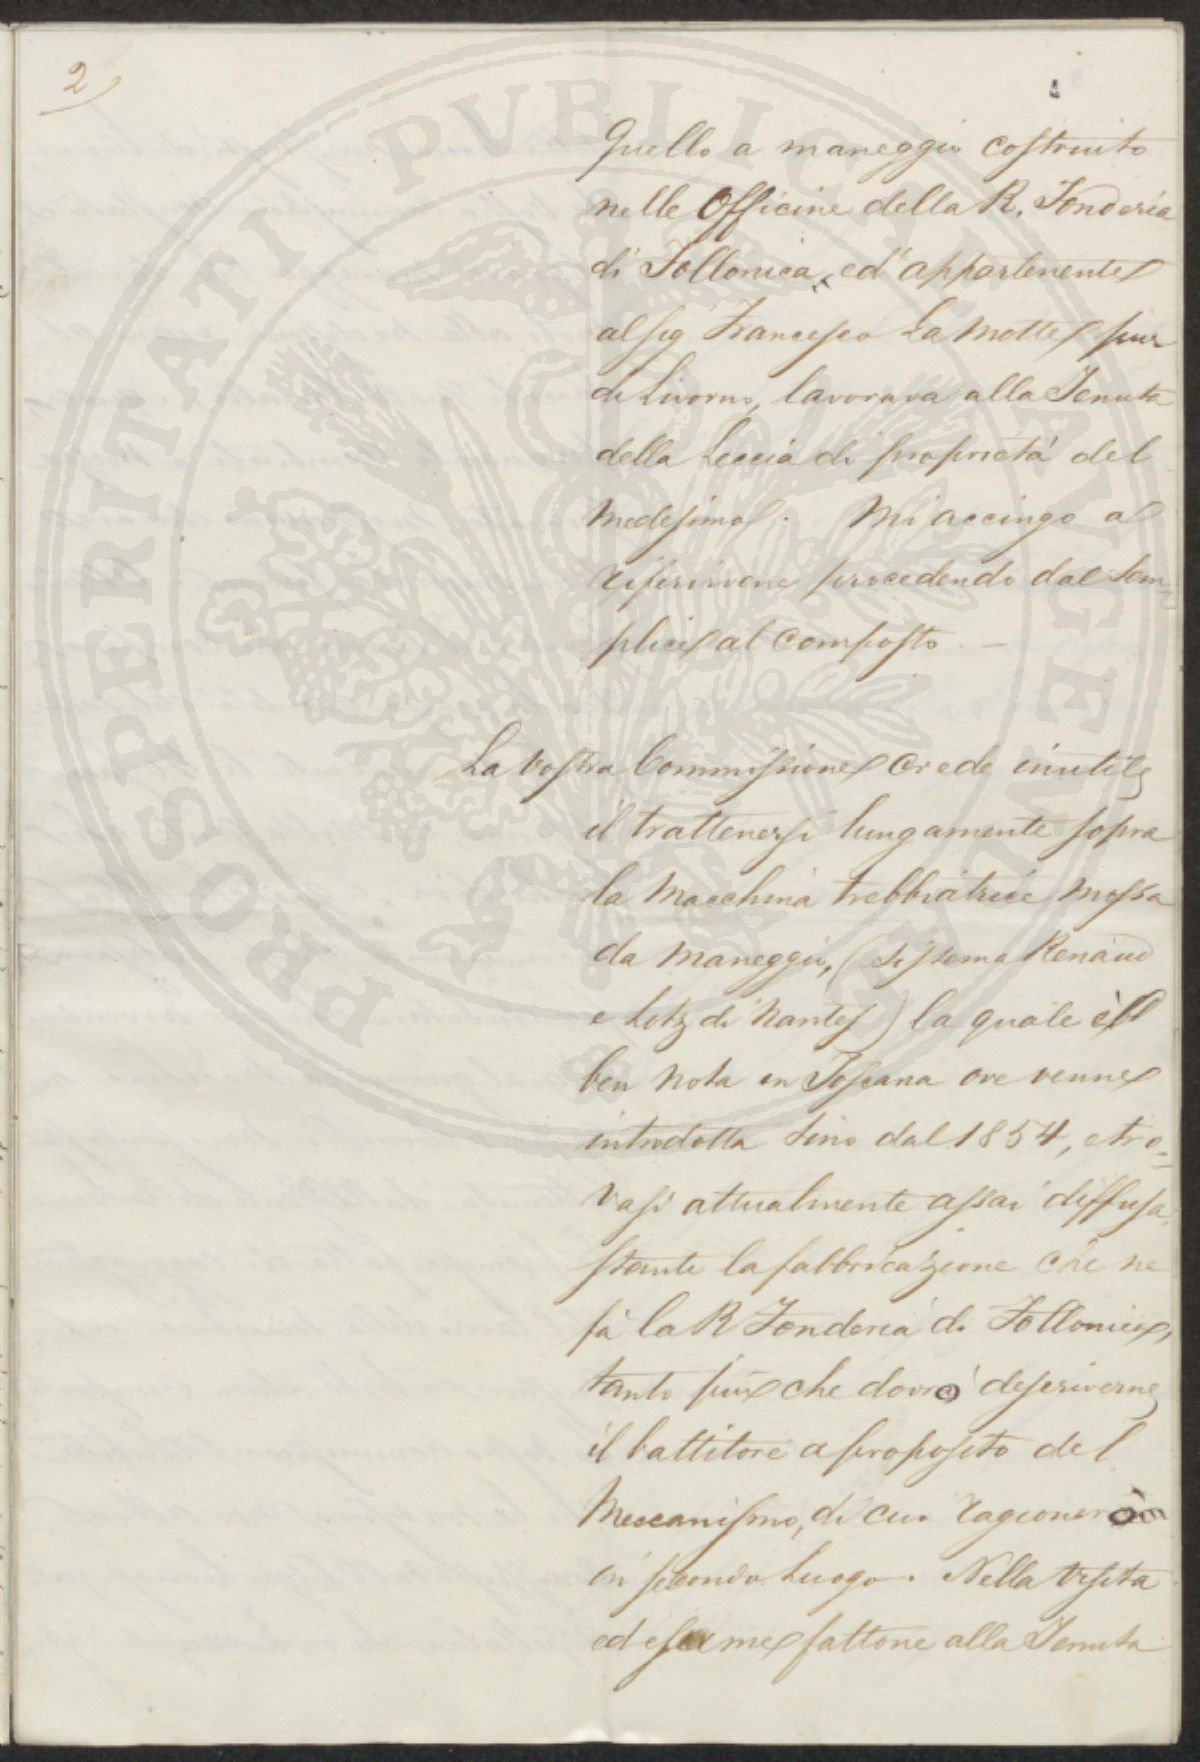 2
Quello a maneggio costruito
nelle Officine della R. Fonderia
di Follonica, ed' appartenente
al Sig Francesco La Motte pur
di Livorno, lavorava alla Tenuta
della Leccia di proprietá del
Medesimo. Mi accingo a
riferirvene procedendo dal Sem=
plice al Composto. —
La Vostra Commissione Crede inutile
il trattenersi lungamente sopra
la Macchina trebbiatrice mossa
da Maneggio, (Sistema Renaud
e Lotz di Nantes) la quale è
ben nota in Toscana ove venne
introdotta sino dal 1854, e tro=
vasi attualmente assai diffusa,
stante la fabbricazione che ne
fà la R Fonderia di Follonica,
tanto più che dovrò descriverne
il battitore a proposito del
Meccanismo, di cui ragionerò
in secondo Luogo. Nella Visita
ed esame fattone alla Tenuta
PROSPERITATI PVBLICAE AVGENDAE